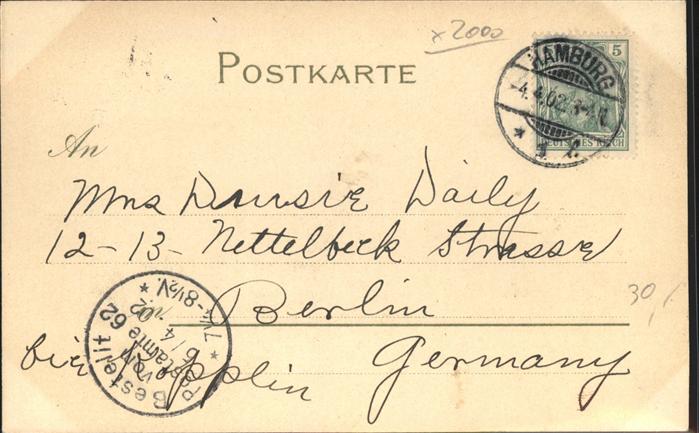 x2000
5
HAMBURG
4.4.02.
* 1 l. *
DEUTSCHES REICH
POSTKARTE
An
Mrs Daily
12-13- Nettelbeck Strasse
Berlin
30,
Germany
Bestellt
vom
Postamte 62
6/4
02
8½V.